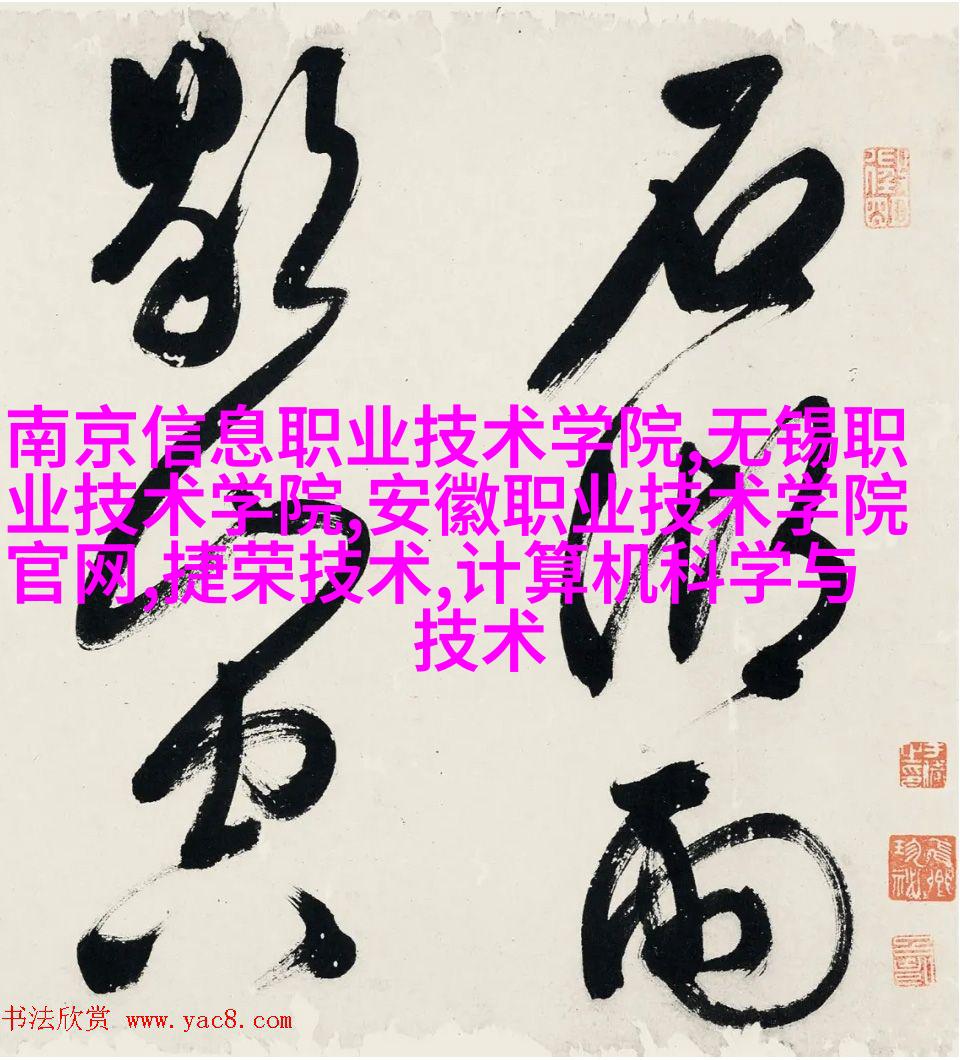 石湖雨
歇山空
南京信息职业技术学院,无锡职
业技术学院,安徽职业技术学院
官网,捷荣技术,计算机科学与
技术
书法欣赏 www.yac8.com